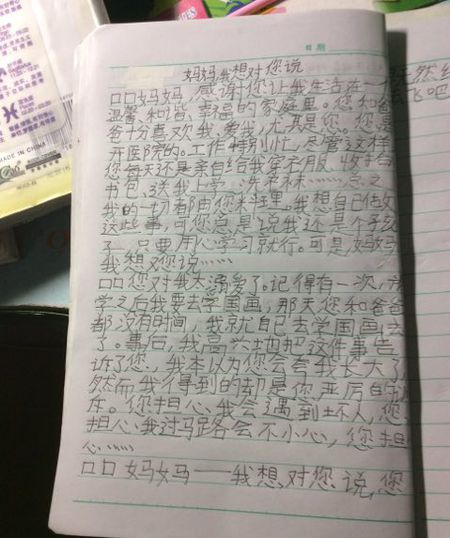 日期
妈妈,我想对您说
口口妈妈,感谢您让我生活在一个
温馨、和谐、幸福的家庭里。您和爸
爸十分喜欢我、爱我,尤其是您。您是
开医院的。工作特别忙,尽管这样
您每天还是亲自给我穿衣服、收拾
书包、送我上学、洗衣袜……总之,
我的一切都由您料理。我想自己做
这些事,可您总是说我还是个孩
子,只要用心学习就行。可是妈妈
我想对您说……
口口您对我太溺爱了。记得有一次,放
学之后我要去学国画,那天您和爸爸
都没有时间,我就自己去学国画去
了。事后,我高兴地把这件事告
诉了您,我本以为您会夸我长大了,
然而我得到的却是您严厉的训
斥。您担心我会遇到坏人,您
担心我过马路会不小心,您担
心……
口口妈妈——我想对您说,您
飞吧
MADE IN CHINA